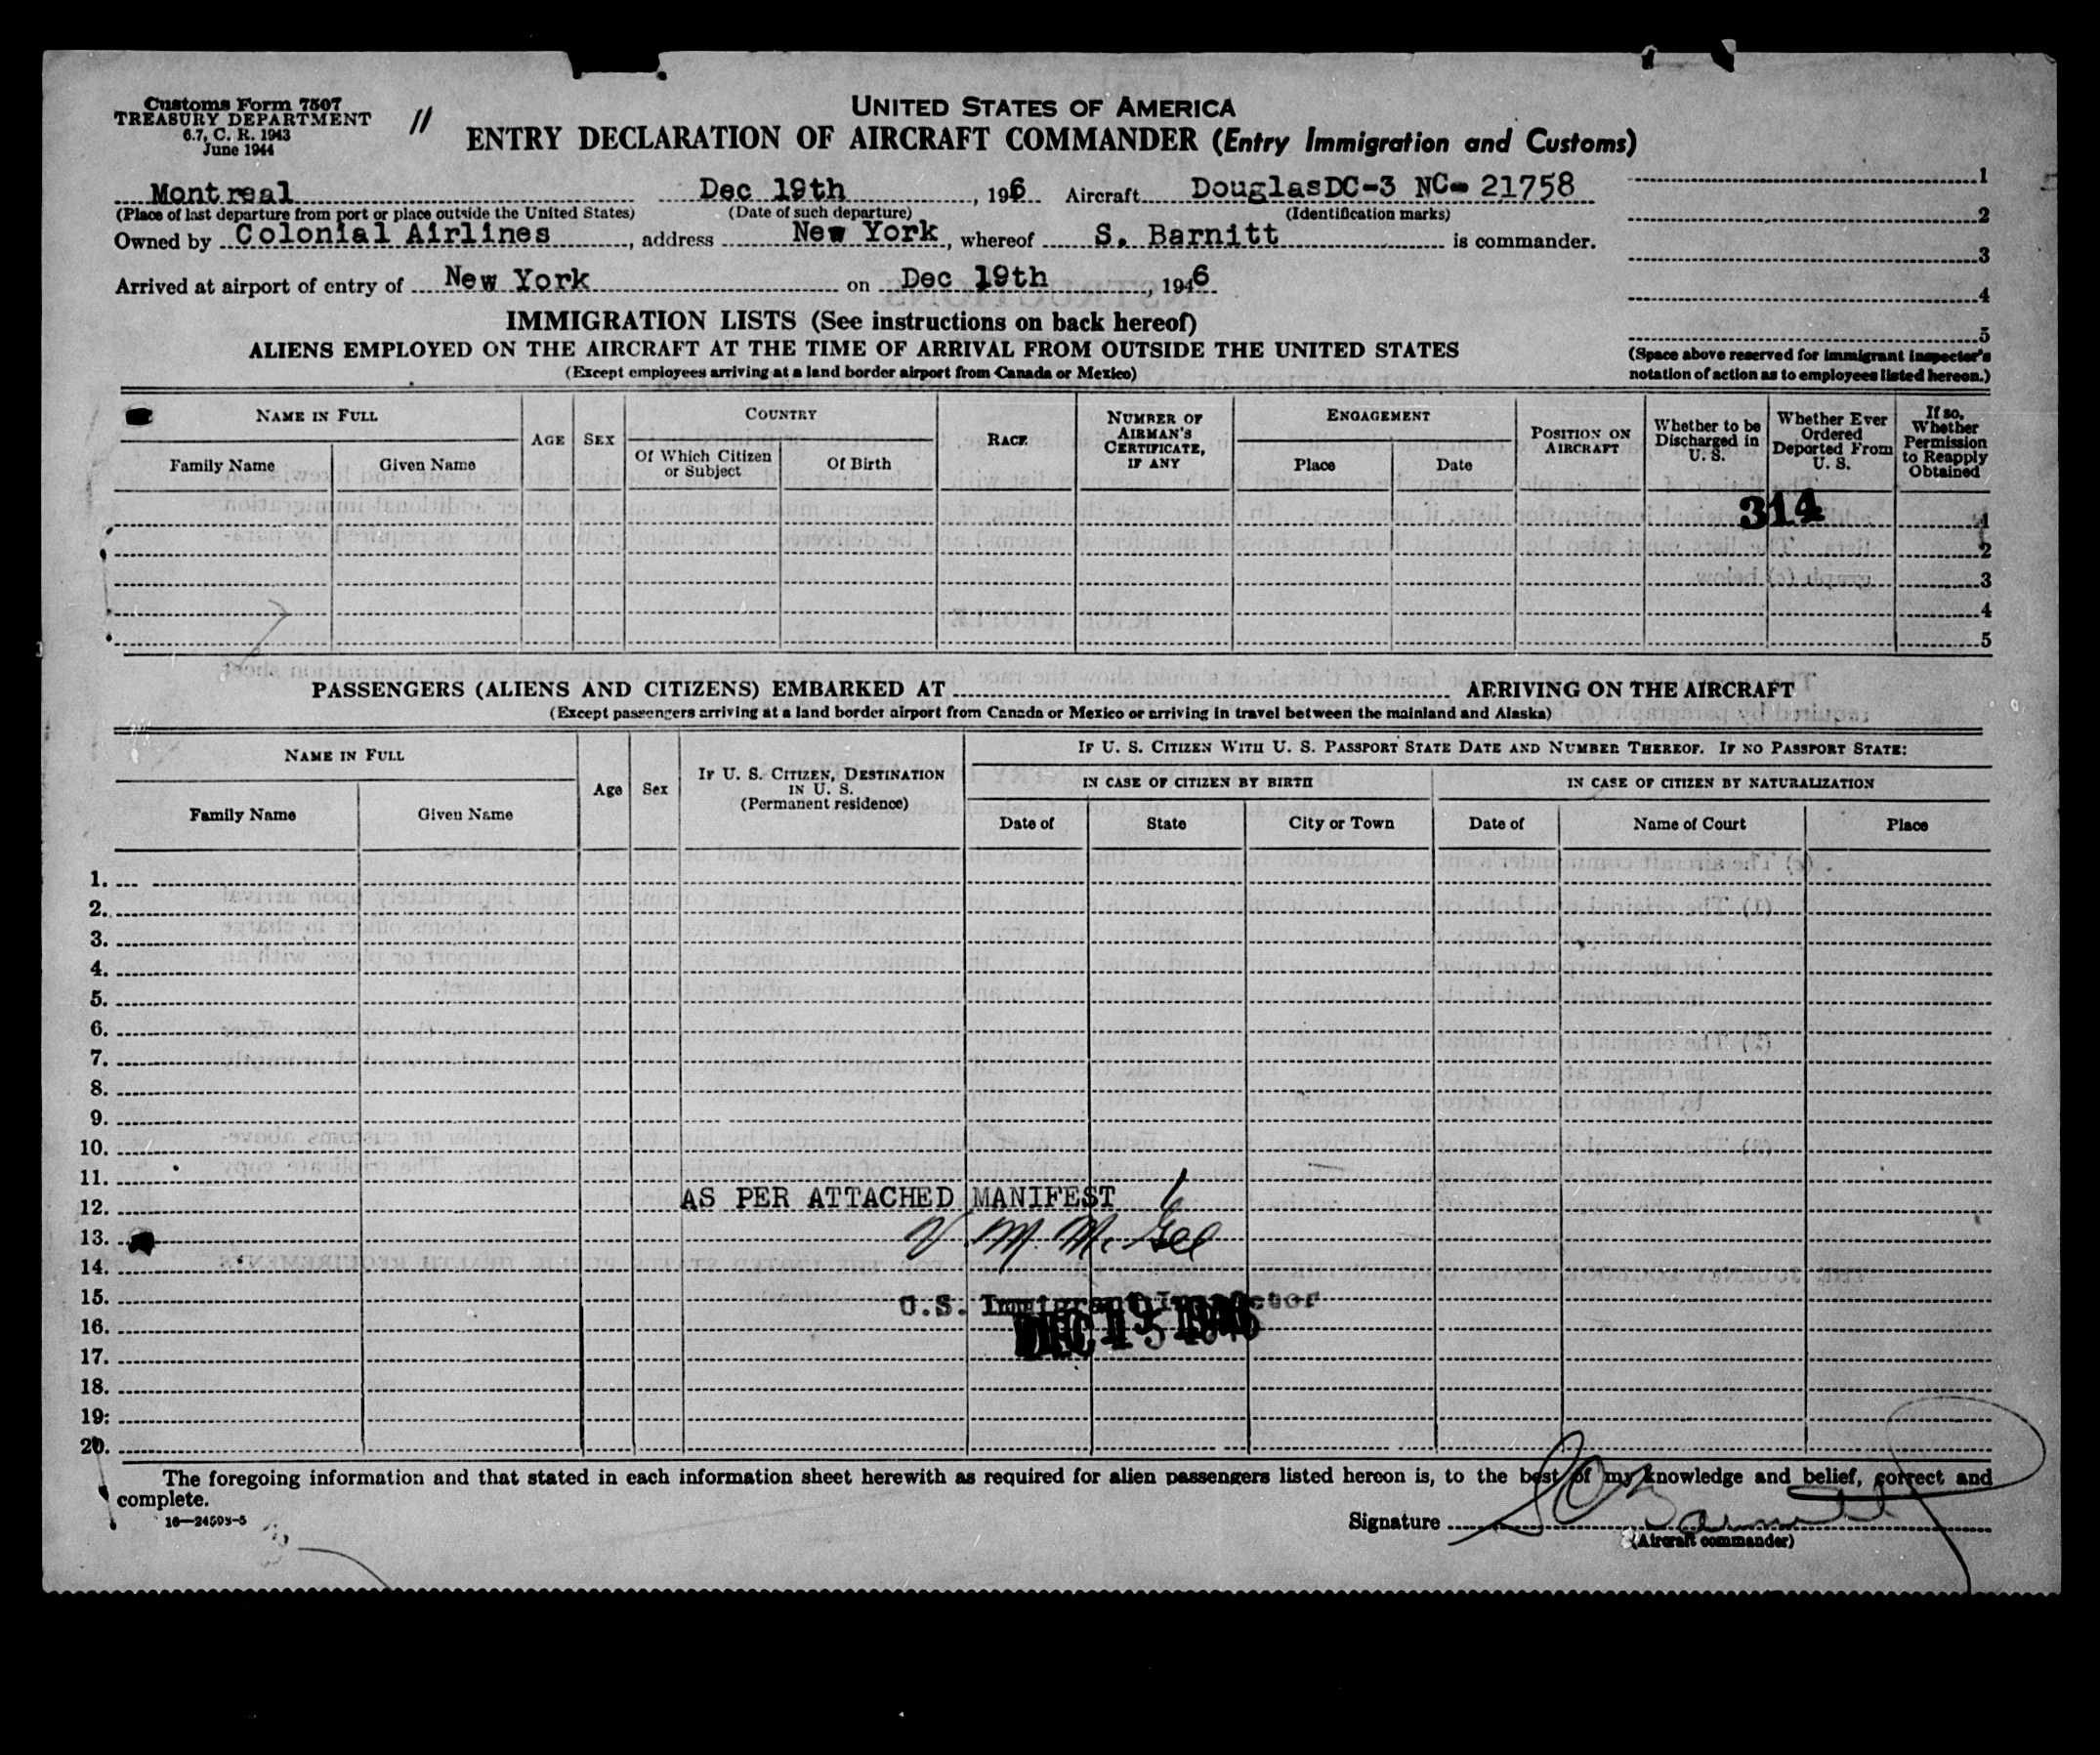 Customs Form 7507
TREASURY DEPARTMENT
6.7, C. R. 1943
June 1944
11
UNITED STATES OF AMERICA
ENTRY DECLARATION OF AIRCRAFT COMMANDER (Entry Immigration and Customs)
Montreal Dec 19th, 1946 Aircraft DouglasDC-3 NC- 21758
(Place of last departure from port or place outside the United States) (Date of such departure) (Identification marks)
Owned by Colonial Airlines, address New York, whereof S. Barnitt is commander.
Arrived at airport of entry of New York on Dec 19th, 1946
1
2
3
4
5
(Space above reserved for immigrant inspector's
notation of action as to employees listed hereon.)
IMMIGRATION LISTS (See instructions on back hereof)
ALIENS EMPLOYED ON THE AIRCRAFT AT THE TIME OF ARRIVAL FROM OUTSIDE THE UNITED STATES
(Except employees arriving at a land border airport from Canada or Mexico)
NAME IN FULL
Family Name Given Name
AGE SEX
COUNTRY
Of Which Citizen or Subject
Of Birth
RACE
NUMBER OF AIRMAN'S CERTIFICATE, IF ANY
ENGAGEMENT
Place Date
POSITION ON AIRCRAFT
Whether to be Discharged in U. S.
Whether Ever Ordered Deported From U. S.
If so, Whether Permission to Reapply Obtained
314
1
2
3
4
5
PASSENGERS (ALIENS AND CITIZENS) EMBARKED AT ARRIVING ON THE AIRCRAFT
(Except passengers arriving at a land border airport from Canada or Mexico or arriving in travel between the mainland and Alaska)
NAME IN FULL
Family Name Given Name
Age Sex
IF U. S. CITIZEN, DESTINATION IN U. S.
(Permanent residence)
IF U. S. CITIZEN WITH U. S. PASSPORT STATE DATE AND NUMBER THEREOF. IF NO PASSPORT STATE:
IN CASE OF CITIZEN BY BIRTH IN CASE OF CITIZEN BY NATURALIZATION
Date of State City or Town Date of Name of Court Place
1.
2.
3.
4.
5.
6.
7.
8.
9.
10.
11.
12. AS PER ATTACHED MANIFEST
13. V. M. McGee
14.
15. U.S. Immigrant Inspector
16. DEC 19 1946
17.
18.
19.
20.
The foregoing information and that stated in each information sheet herewith as required for alien passengers listed hereon is, to the best of my knowledge and belief, correct and
complete.
16—24593-5
Signature S C Barnitt
(Aircraft commander)